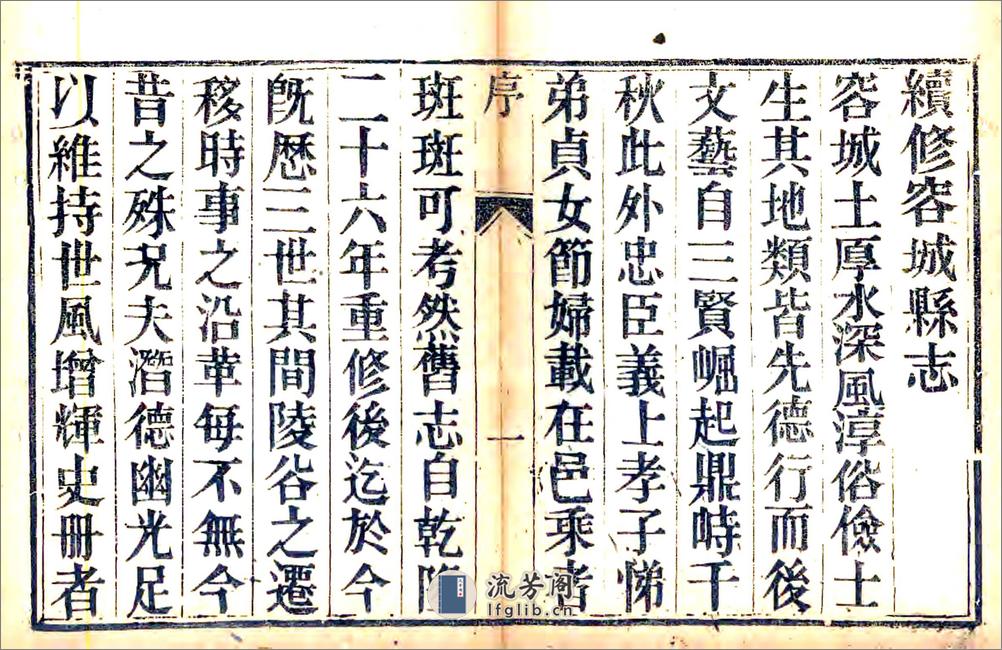 續修容城縣志
容城土厚水深風淳俗儉士
生其地類皆先德行而後
文藝自三賢崛起鼎峙千
秋此外忠臣義上孝子悌
弟貞女節婦載在邑乘者
序
一
斑斑可考然舊志自乾隆
二十六年重修後迄於今
旣歴三世其間陵谷之遷
移時事之沿革每不無今
昔之殊況夫潛德幽光足
以維持世風增輝史冊者
流芳阁
lfglib.cn